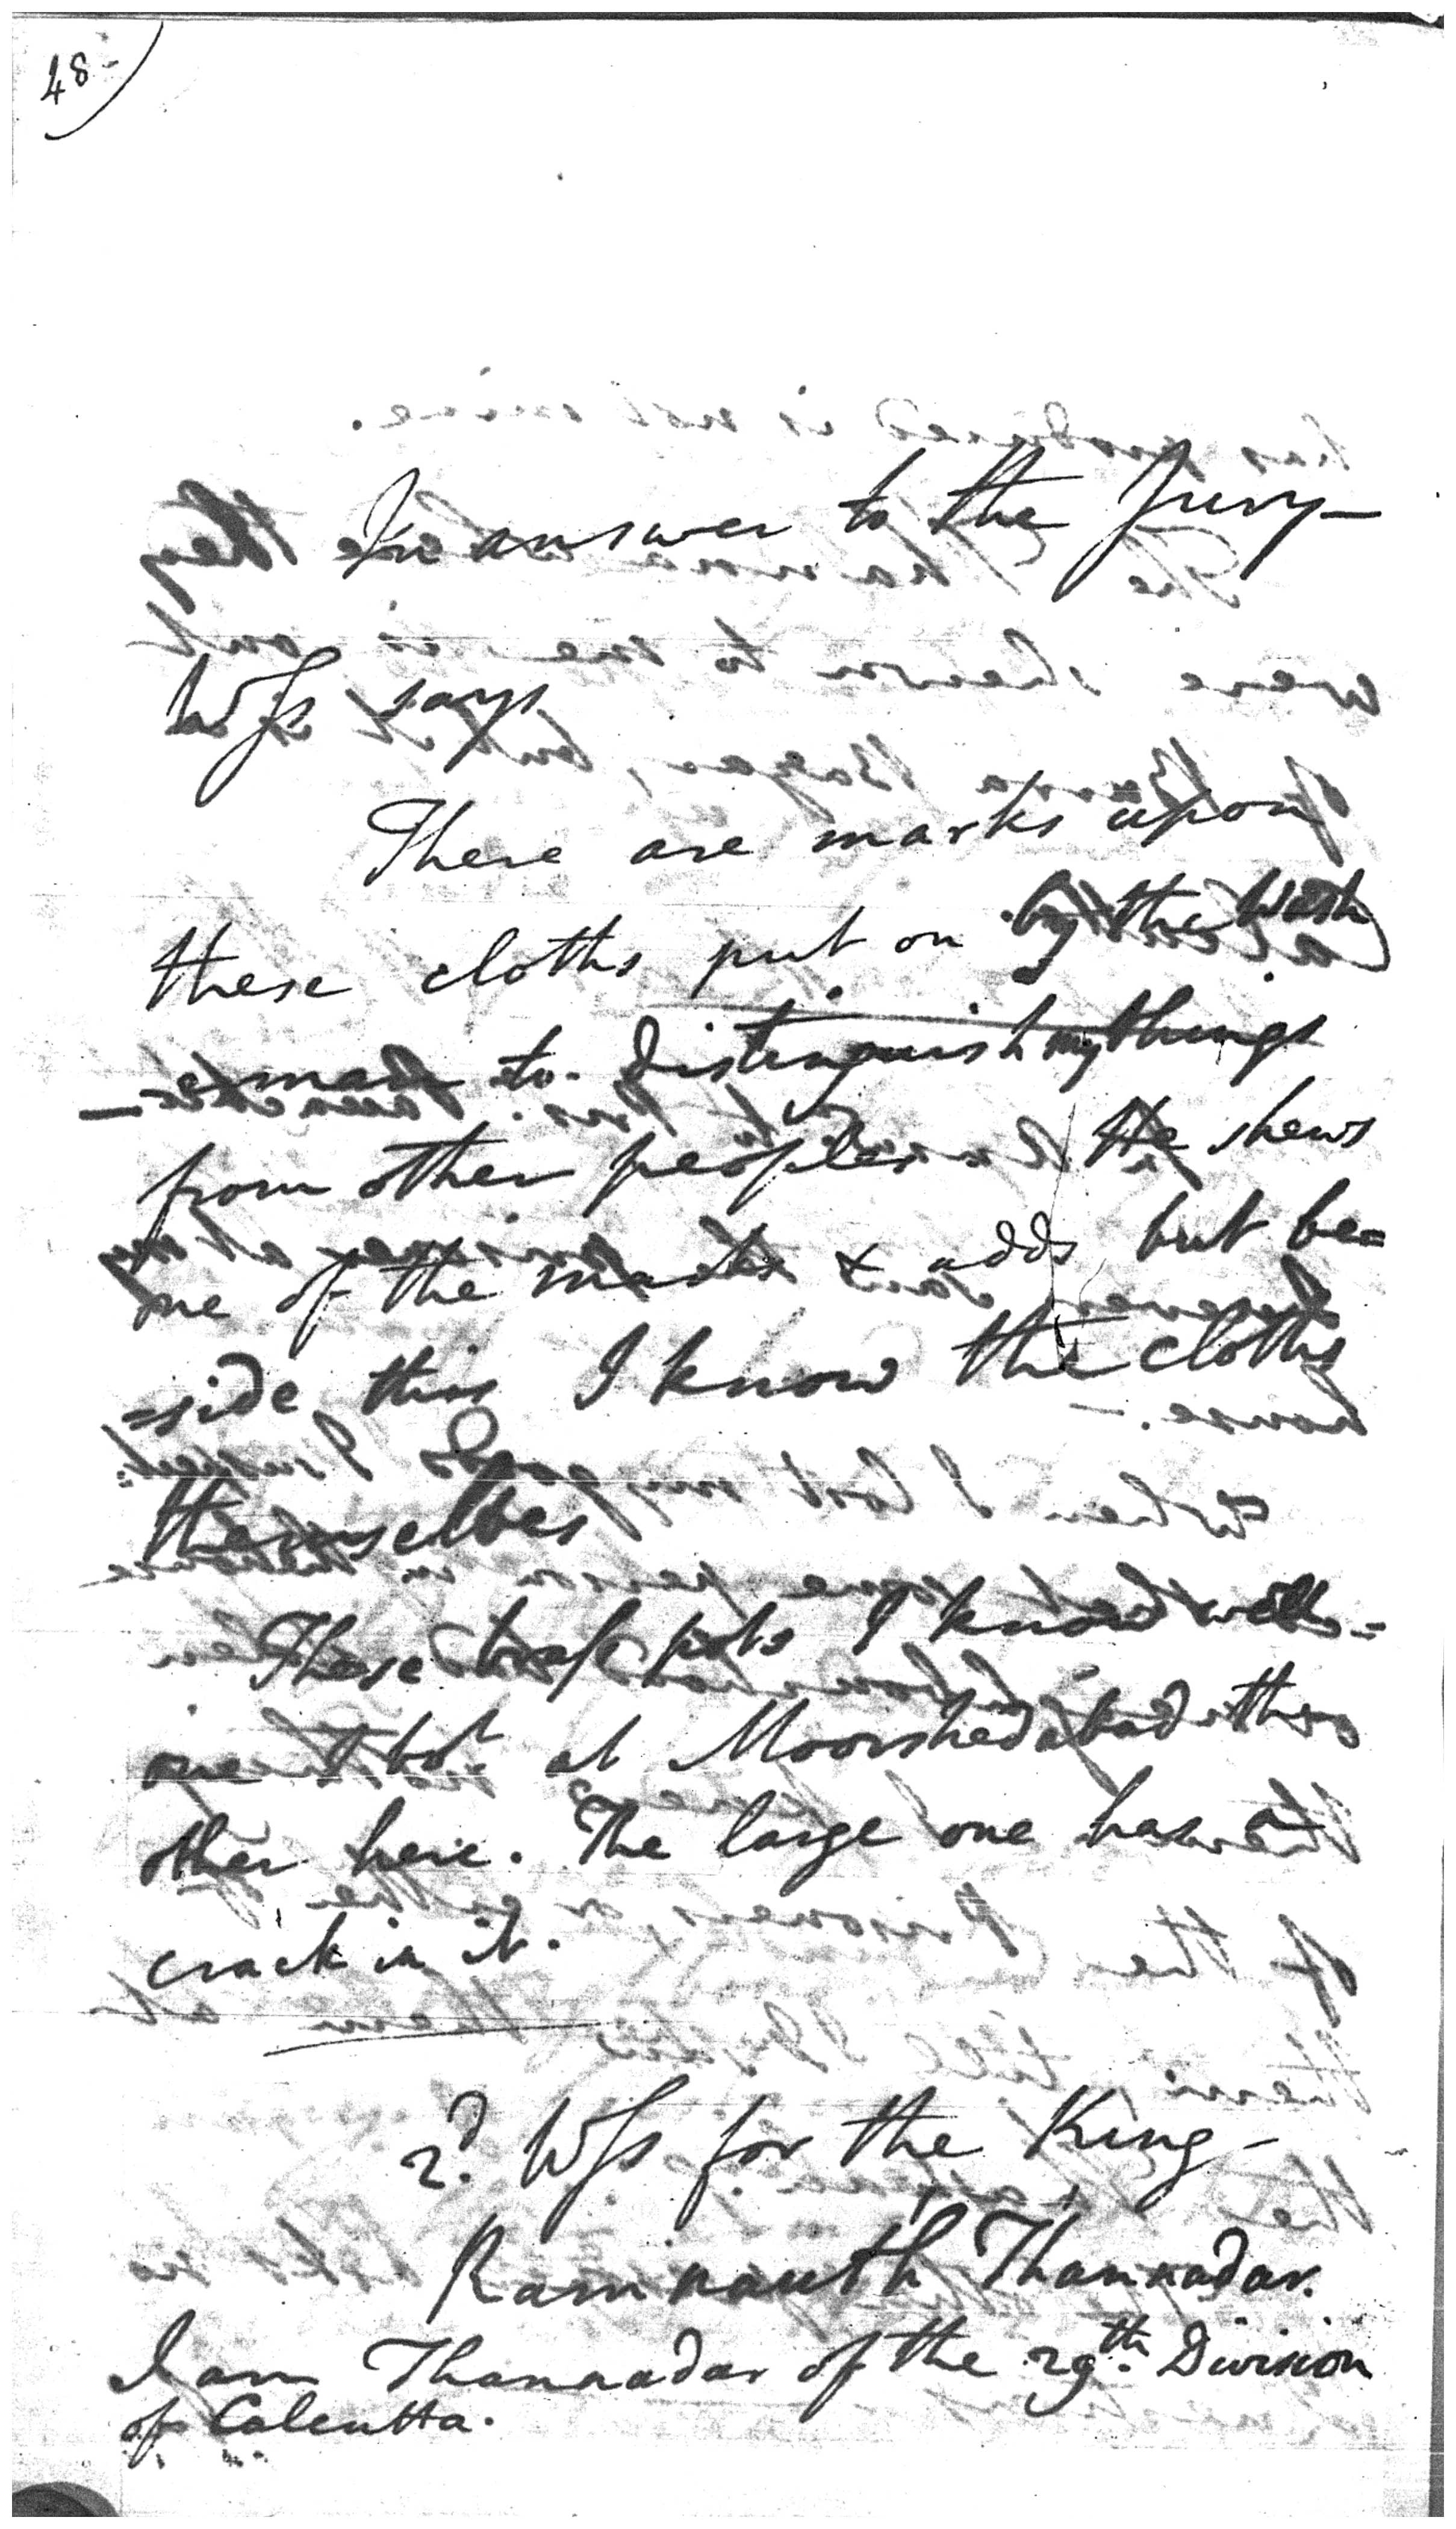 48-
In answer to the Jury—
Wss says
There are marks upon
these cloths put on by the Wash
=erman to distinguish my things
from other peoples. He shews
one of the marks & adds, but be=
=side this I know the cloths
themselves
These brass pots I know well=
one I bot. at Moorshedabad the
other here. The large one has a
crack in it.
2d. Wss for the King—
Ramnauth Thannadar.
I am Thannadar of the 29th. Division
of Calcutta.